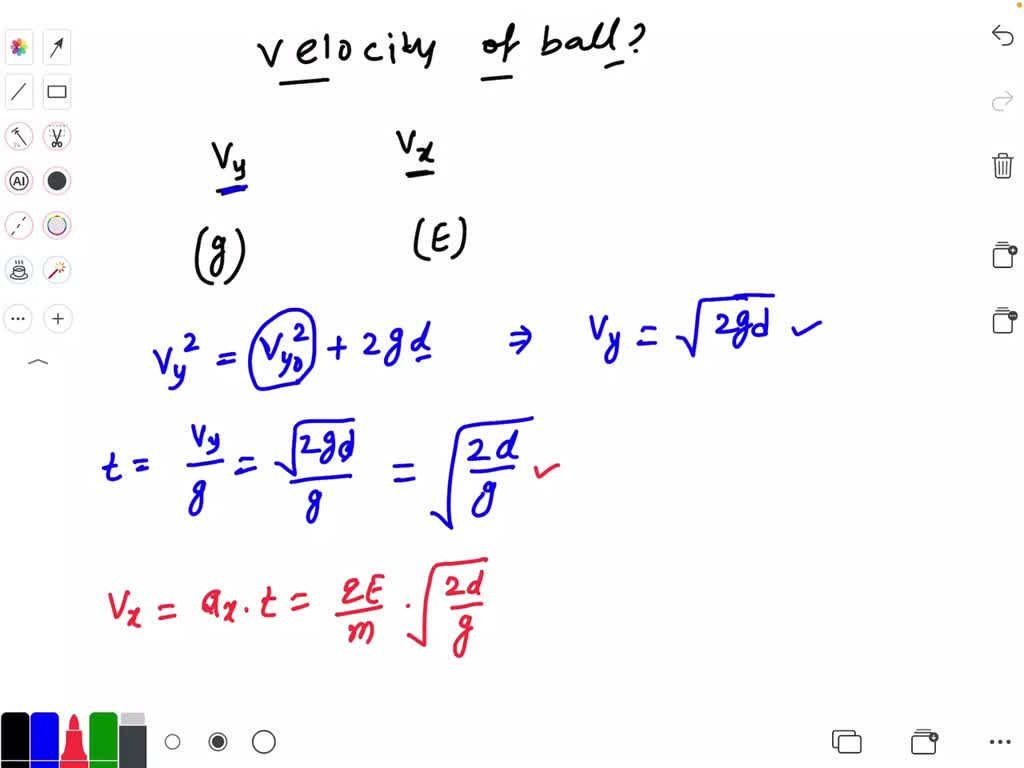 velocity of ball?
Vy Vx
(g) (E)
Vy² = Vy₀² + 2gd ⇒ Vy = √2gd ✓
t = Vy/g = √2gd/g = √(2d/g) ✓
Vx = ax · t = qE/m · √(2d/g)
AI